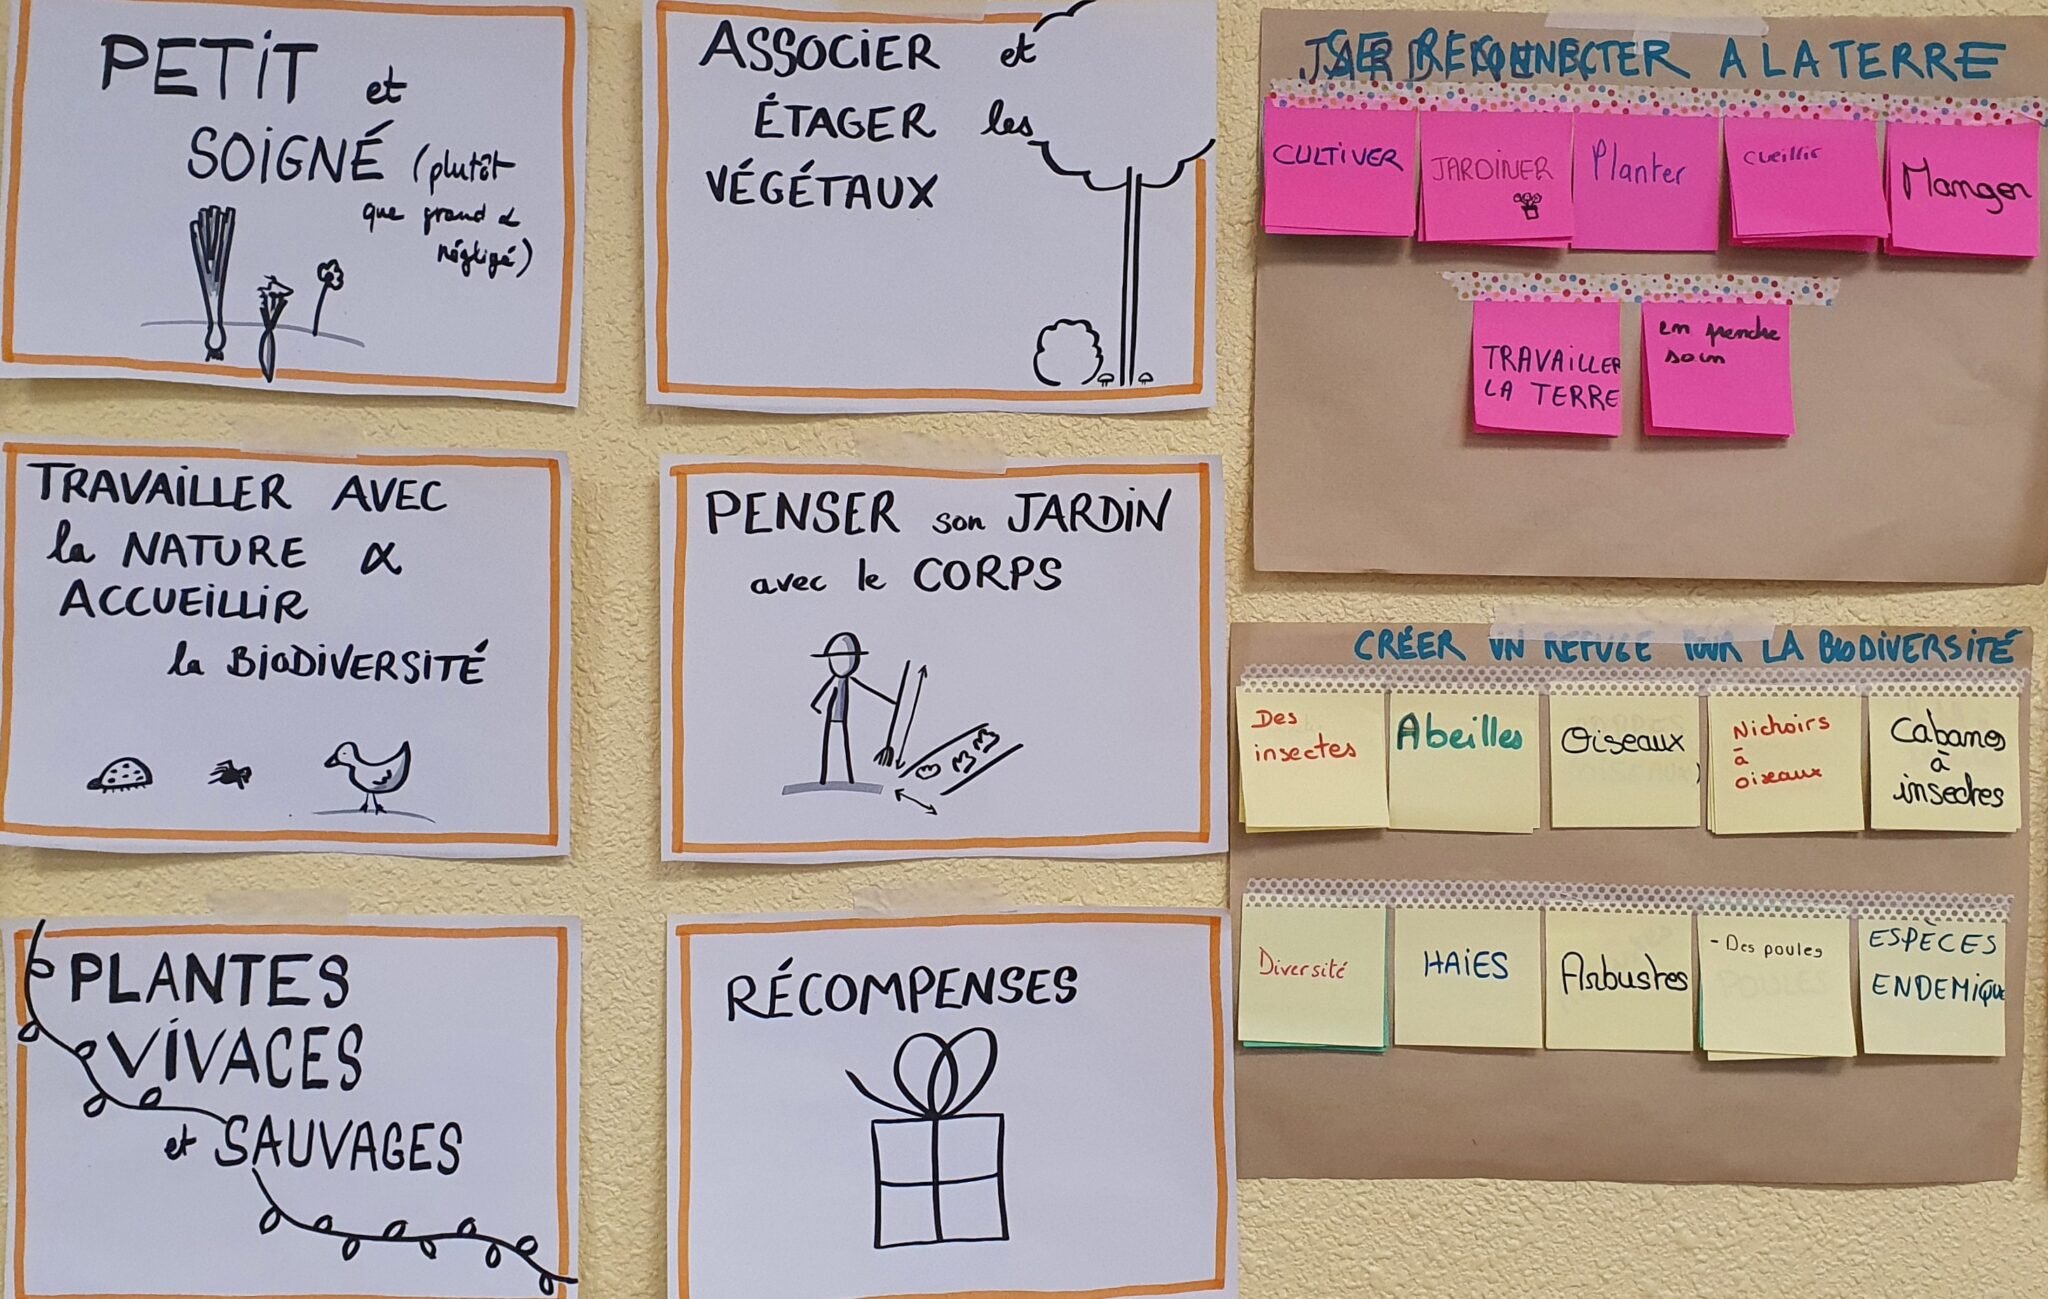 PETIT et
SOIGNÉ (plutôt
que grand &
négligé)
ASSOCIER et
ÉTAGER les
VÉGÉTAUX
TRAVAILLER AVEC
la NATURE &
ACCUEILLIR
la BIODIVERSITÉ
PENSER son JARDIN
avec le CORPS
PLANTES
VIVACES
et SAUVAGES
RÉCOMPENSES
SE RECONNECTER A LA TERRE
CULTIVER
JARDINER
Planter
cueillir
Manger
TRAVAILLER
LA TERRE
en prendre
soin
CRÉER UN REFUGE POUR LA BIODIVERSITÉ
Des
insectes
Abeilles
Oiseaux
Nichoirs
à
oiseaux
Cabanes
à
insectes
Diversité
HAIES
Arbustes
- Des poules
ESPÈCES
ENDEMIQUE